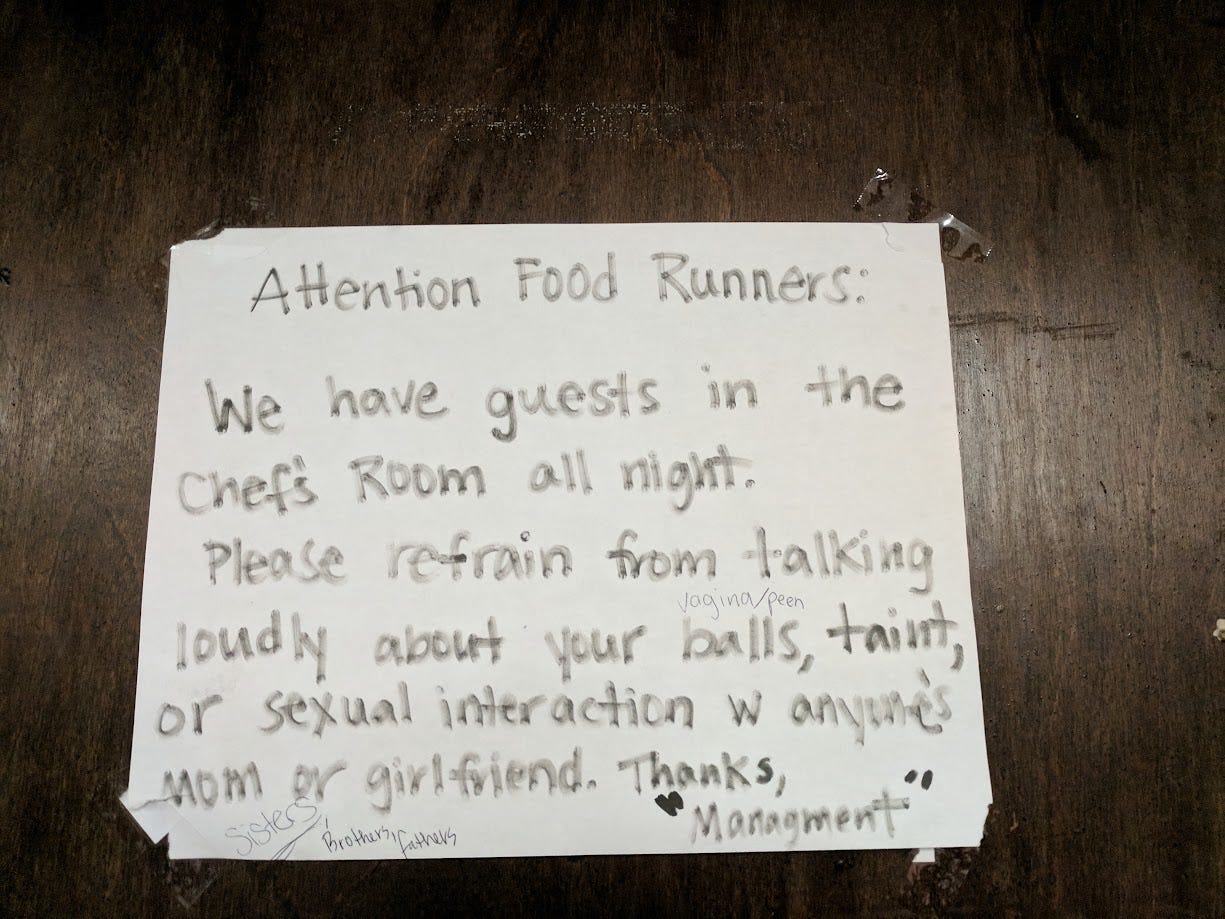 Attention Food Runners:
We have guests in the
Chef's Room all night.
Please refrain from talking
vagina/peen
loudly about your balls, taint,
or sexual interaction w anyone's
mom or girlfriend. Thanks,
"Managment"
Sisters, Brothers, fathers